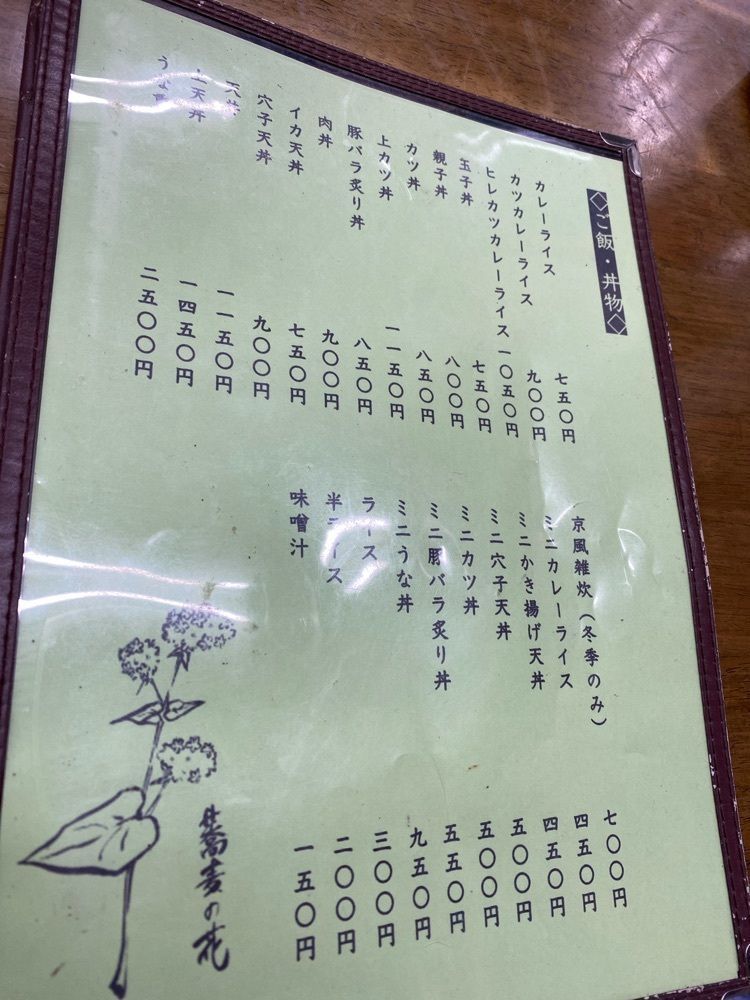 ◇ご飯・丼物◇
カレーライス 七五〇円
カツカレーライス 九〇〇円
ヒレカツカレーライス 一〇五〇円
玉子丼 七五〇円
親子丼 八〇〇円
カツ丼 八五〇円
上カツ丼 一一五〇円
豚バラ炙り丼 八五〇円
肉丼 九〇〇円
イカ天丼 七五〇円
穴子天丼 九〇〇円
天丼 一一五〇円
上天丼 一四五〇円
二五〇〇円
京風雑炊(冬季のみ) 七〇〇円
ミニカレーライス 四五〇円
ミニかき揚げ天丼 四五〇円
ミニ穴子天丼 五〇〇円
ミニカツ丼 五〇〇円
ミニ豚バラ炙り丼 五五〇円
ミニうな丼 九五〇円
ライス 三〇〇円
半ライス 二〇〇円
味噌汁 一五〇円
蕎麦の花